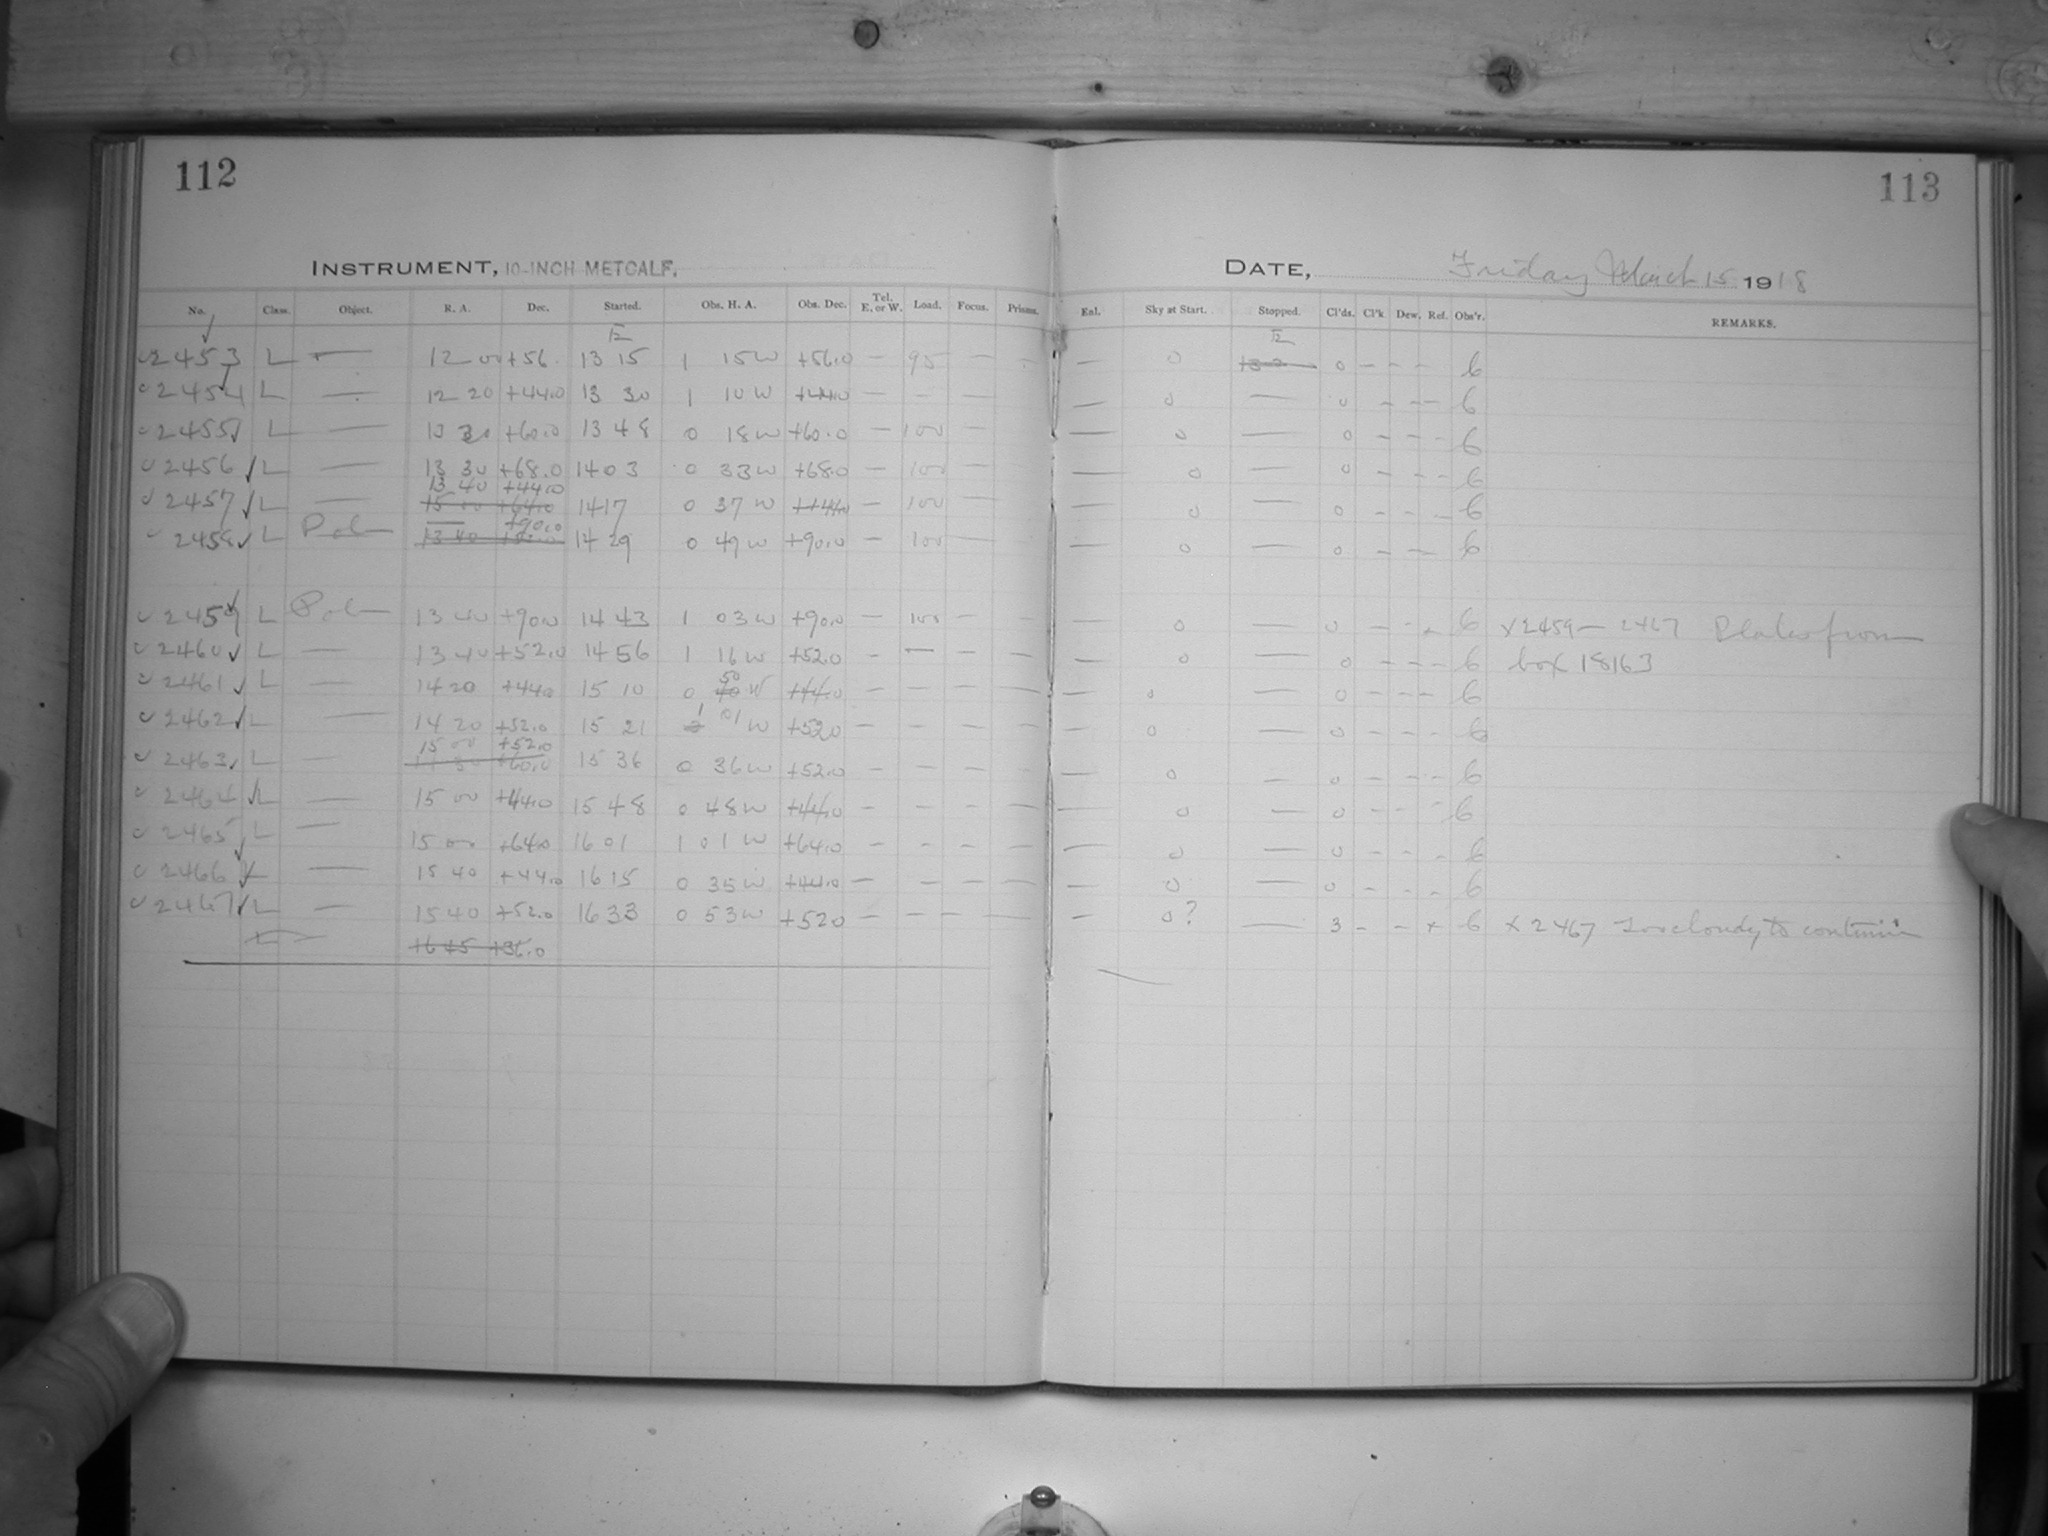 112
113
INSTRUMENT, 10-INCH METCALF.
DATE, Friday March 15 1918
No. Class. Object. R. A. Dec. Started. Obs. H. A. Obs. Dec. Tel. E. or W. Load. Focus. Prisms. Enl. Sky at Start. Stopped. Cl'ds. Cl'k. Dew. Ref. Obs'r. REMARKS.
2453 L — 12 00 +56. 13 15 1 15 W +56.0 — 95 — — 0 0 - - - 6
2454 L — 12 20 +44.0 13 30 1 10 W +44.0 — - — — 0 — 0 - - - 6
2455 L — 13 30 +60.0 13 48 0 18 W +60.0 — 100 — — 0 — 0 - - - 6
2456 L — 13 30 +68.0 14 03 0 33 W +68.0 — 100 — — 0 — 0 - - - 6
13 40 +44.0
2457 L — 14 17 0 37 W +44.0 — 100 — — 0 — 0 - - - 6
— +90.0
2458 L Pole 14 29 0 49 W +90.0 — 100 — — 0 — 0 - - - 6
2459 L Pole 13 40 +90.0 14 43 1 03 W +90.0 — 100 — - — 0 — 0 - - - 6 x 2459 — 2467 Plates from
2460 L — 13 40 +52.0 14 56 1 16 W +52.0 - — - — — 0 — 0 - - - 6 box 18163
2461 L — 14 20 +44.0 15 10 0 50 W +44.0 — - - — — 0 — 0 - - - 6
2462 L — 14 20 +52.0 15 21 1 01 W +52.0 — - - — — 0 — 0 - - - 6
15 00 +52.0
2463 L — 15 36 0 36 W +52.0 — - - — — 0 — 0 - - - 6
2464 L — 15 00 +44.0 15 48 0 48 W +44.0 — - - — — 0 — 0 - - - 6
2465 L — 15 00 +64.0 16 01 1 01 W +64.0 - - - — — 0 — 0 - - - 6
2466 L — 15 40 +44.0 16 15 0 35 W +44.0 — - - — — 0 — 0 - - - 6
2467 L — 15 40 +52.0 16 33 0 53 W +52.0 — — - — - 0? — 3 - - x 6 x 2467 Too cloudy to continue
16 45 +36.0